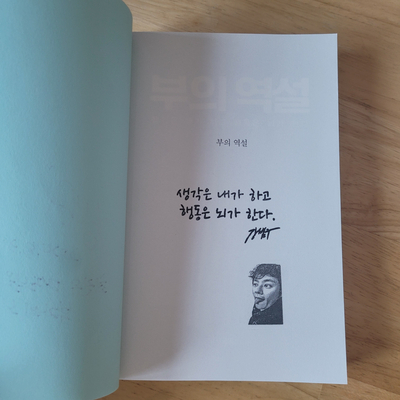 부의 역설
부의 역설
생각은 내가 하고
행동은 뇌가 한다.